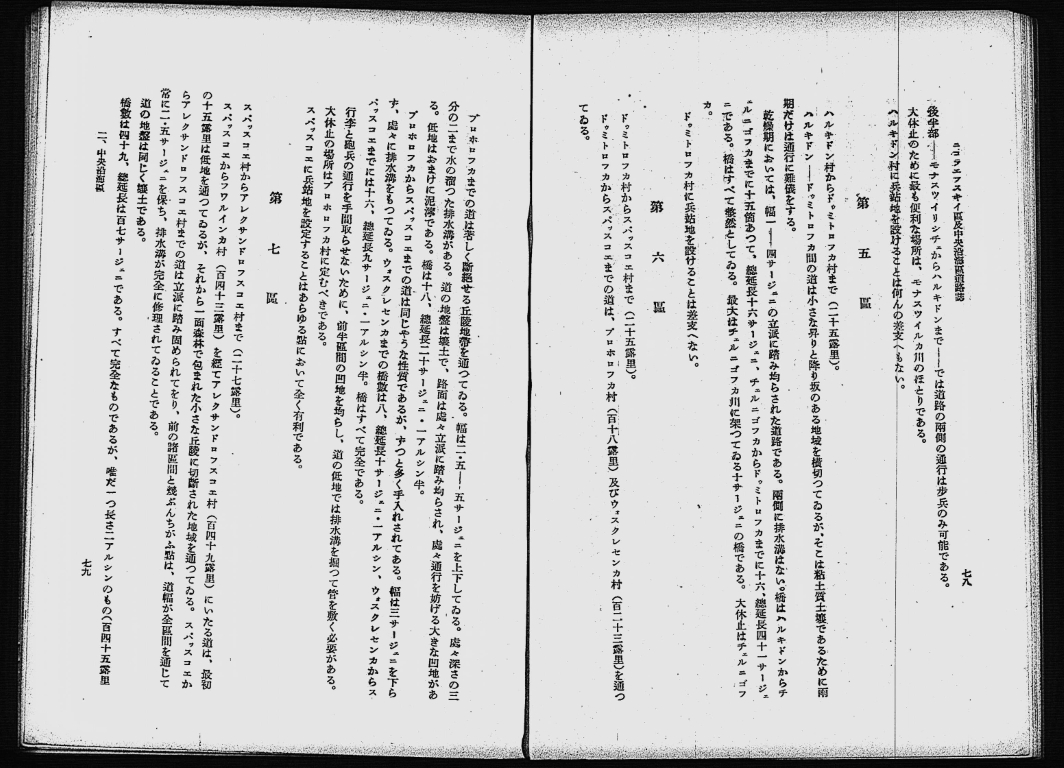 ニコラエフスキイ區及中央沿海區道路誌
七八
後半部――モナスツイリシチェからハルキドンまで――では道路の兩側の通行は歩兵のみ可能である。
大休止のために最も便利な場所は、モナスツイルカ川のほとりである。
ハルキドン村に兵站地を設けることは何んの差支へもない。
第五區
ハルキドン村からドゥミトロフカ村まで（二十五露里）。
ハルキドン――ドゥミトロフカ間の道は小さな昇りと降り坂のある地域を横切つてゐるが、そこは粘土質土壤であるために雨
期だけは通行に難儀をする。
乾燥期においては、幅一――四サージェニの立派に踏み均らされた道路である。兩側に排水溝はない。橋はハルキドンからチ
ェルニゴフカまでに十五箇あつて、總延長十六サージェニ、チェルニゴフカからドゥミトロフカまでに十六、總延長四十一サージェ
ニである。橋はすべて整然としてゐる。最大はチェルニゴフカ川に架つてゐる十サージェニの橋である。大休止はチェルニゴフ
カ。
ドゥミトロフカ村に兵站地を設けることは差支へない。
第六區
ドゥミトロフカ村からスパッスコエ村まで（二十五露里）。
ドゥミトロフカからスパッスコエまでの道は、プロホロフカ村（百十八露里）及びウォスクレセンカ村（百二十三露里）を通つ
てゐる。
プロホロフカまでの道は著しく斷絶せる丘陵地帶を通つてゐる。幅は二・五――五サージェニを上下してゐる。處々深さの三
分の二まで水の溜つた排水溝がある。道の地盤は壤土で、路面は處々立派に踏み均らされ、處々通行を妨げる大きな凹地があ
る。低地はおまけに泥濘である。橋は十八、總延長二十サージェニ・一アルシン半。
プロホロフカからスパッスコエまでの道は同じやうな性質であるが、ずつと多く手入れされてある。幅は三サージェニを下ら
ず、處々に排水溝をもつてゐる。ウォスクレセンカまでの橋數は八、總延長十サージェニ・一アルシン、ウォスクレセンカからス
パッスコエまでには十六、總延長九サージェニ・一アルシン半。橋はすべて完全である。
行李と砲兵の通行を手間取らせないために、前半區間の凹地を均らし、道の低地では排水溝を掘つて管を敷く必要がある。
大休止の場所はプロホロフカ村に定むべきである。
スパッスコエに兵站地を設定することはあらゆる點において全く有利である。
第七區
スパッスコエ村からアレクサンドロフスコエ村まで（二十七露里）。
スパッスコエからフワルインカ村（百四十三露里）を經てアレクサンドロフスコエ村（百四十九露里）にいたる道は、最初
の十五露里は低地を通つてゐるが、それから一面森林で包まれた小さな丘陵に切斷された地域を通つてゐる。スパッスコエか
らアレクサンドロフスコエ村までの道は立派に踏み固められてをり、前の諸區間と幾ぶんちがふ點は、道幅が全區間を通じて
常に二・五サージェニを保ち、排水溝が完全に修理されてゐることである。
道の地盤は同じく壤土である。
橋數は四十九、總延長は百七サージェニである。すべて完全なものであるが、唯だ一つ長さ二アルシンのもの（百四十五露里
二、中央沿海區
七九